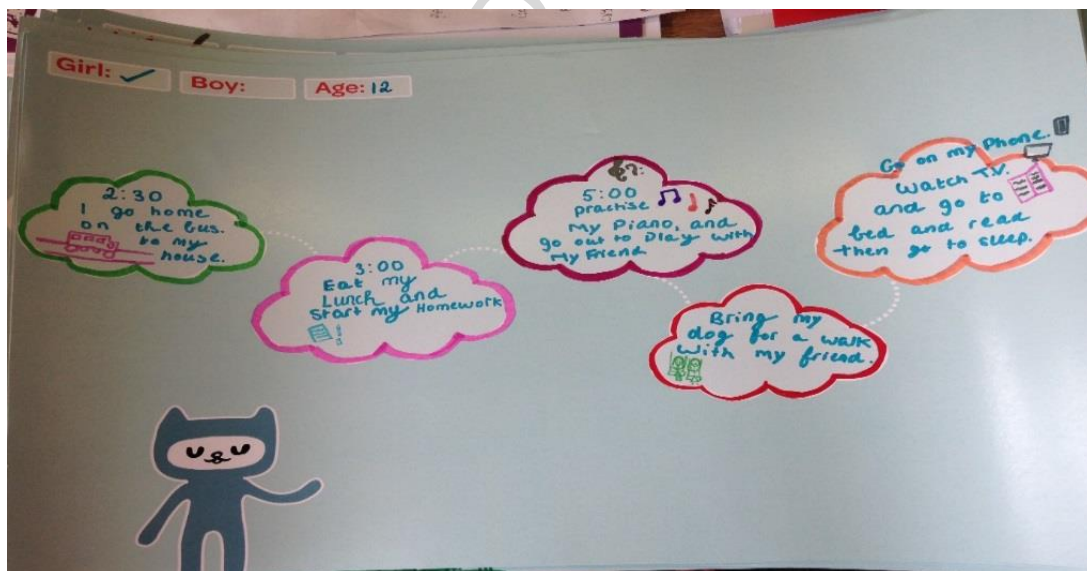 Girl: ✓ Boy: Age: 12
2:30
I go home
on the bus.
to my
house.
3:00
Eat my
Lunch and
Start my Homework
5:00
practise
my Piano, and
go out to Play with
My Friend
Bring my
dog for a walk
with my friend.
Go on my Phone.
Watch T.V.
and go to
bed and read
then go to sleep.